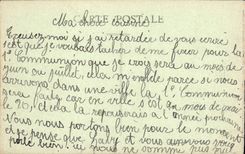 Ma chère cousine
CARTE POSTALE
Excusez moi si j'ai retardée de vous écrire
c'est que je voulais l'heure de me fixer pour la
1e Communion que je crois sera au mois de
juin ou juillet, cela m'embête parce si nous
arrivons dans une ville la 1e Communion
sera faite car en ville c'est en mois de mai
le 20, et cela la repousserai à l'année prochaine
Nous nous portons bien pour le moment
et je pense que Gaby et vous aussi vous
portez bien! nous ne sommes pas